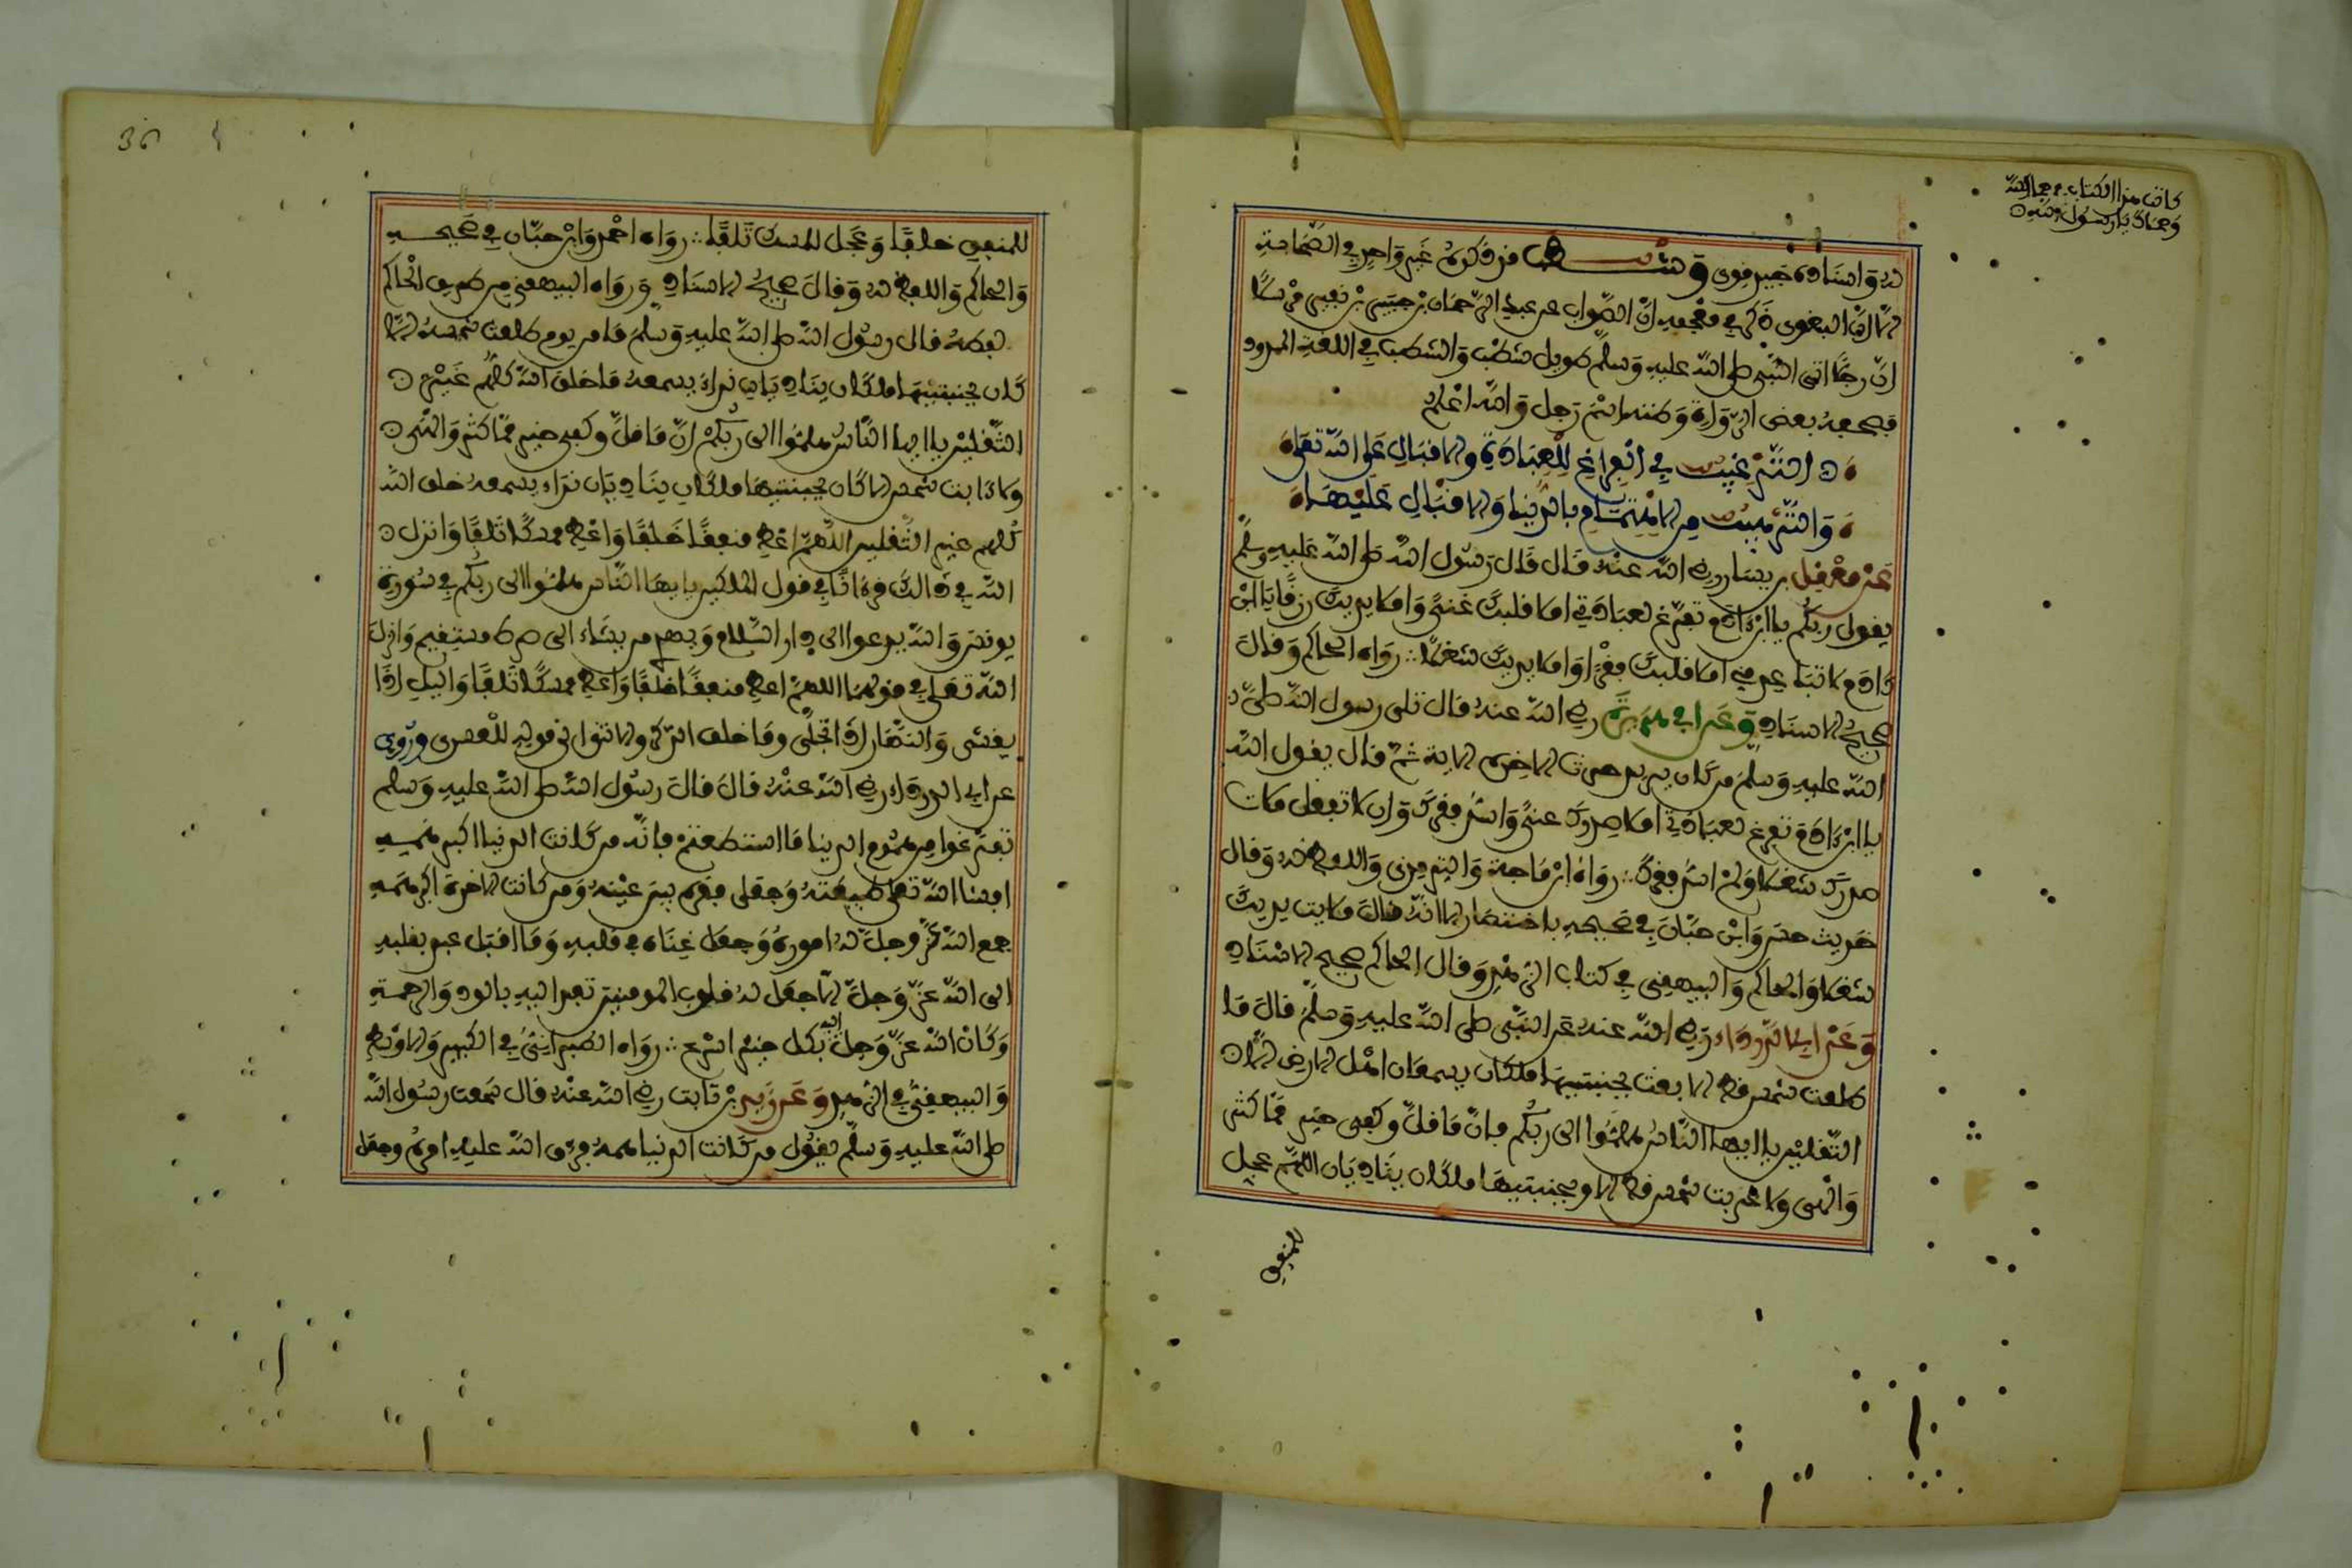 كاتب هذا الكتاب
له واسناده جيد قوي وشطب قد ذكره غير واحد في الصحابة
الا ان البغوي ذكر في معجمه ان الصواب عن عبد الرحمان بن جبير بن نفير مرسلا
ان رجلا اتى النبي صلى الله عليه وسلم طويل شطب والشطب في اللغة الممدود
فصحفه بعض الرواة وظنه اسم رجل والله اعلم
الترغيب في الفراغ للعبادة والاقبال على الله تعلى
والترهيب من الاهتمام بالدنيا والاقبال عليها
عن معقل بن يسار رضي الله عنه قال قال رسول الله صلى الله عليه وسلم
يقول ربكم يا ابن ءادم تفرغ لعبادتي املا قلبك غنى واملا يديك رزقا يا ابن
ءادم لا تباعد مني املا قلبك فقرا واملا يديك شغلا رواه الحاكم وقال
صحيح الاسناد وعن ابي هريرة رضي الله عنه قال تلى رسول الله صلى
الله عليه وسلم من كان يريد حرث الاخرة الاية ثم قال يقول الله
يا ابن ءادم تفرغ لعبادتي املا صدرك غنى واسد فقرك وان لا تفعل ملات
صدرك شغلا ولم اسد فقرك رواه ابن ماجة والترمذي واللفظ له وقال
حديث حسن وابن حبان في صحيحه باختصار الا انه قال ملات يديك
شغلا والحاكم والبيهقي في كتاب الزهد وقال الحاكم صحيح الاسناد
وعن ابي الدرداء رضي الله عنه عن النبي صلى الله عليه وسلم قال ما
طلعت شمس قط الا بعث بجنبتيها ملكان يسمعان اهل الارض الا
الثقلين يا ايها الناس هلموا الى ربكم فان ما قل وكفى خير مما كثر
والهى ولا غربت شمس قط الا وبجنبتيها ملكان يناديان اللهم عجل
للمنفق
36
للمنفق خلفا وعجل للممسك تلفا رواه احمد وابن حبان في صحيحه
والحاكم واللفظ له وقال صحيح الاسناد ورواه البيهقي من طريق الحاكم
لفظه قال رسول الله صلى الله عليه وسلم ما من يوم طلعت شمسه الا
كان بجنبتيها ملكان يناديان نداء يسمعه ما خلق الله كلهم غير
الثقلين يا ايها الناس هلموا الى ربكم ان ما قل وكفى خير مما كثر والهى
ولا ءابت شمس الا كان بجنبتيها ملكان يناديان نداء يسمعه خلق الله
كلهم غير الثقلين اللهم اعط منفقا خلفا واعط ممسكا تلفا وانزل
الله في ذالك قرءانا في قول الملكين يا ايها الناس هلموا الى ربكم في سورة
يونس والله يدعوا الى دار السلام ويهدي من يشاء الى صراط مستقيم وانزل
الله تعلى في قولهما اللهم اعط منفقا خلفا واعط ممسكا تلفا واليل اذا
يغشى والنهار اذا تجلى وما خلق الذكر والانثى الى قوله للعسرى وروي
عن ابي الدرداء رضي الله عنه قال قال رسول الله صلى الله عليه وسلم
تفرغوا من هموم الدنيا ما استطعتم فانه من كانت الدنيا اكبر همه
افشا الله تعلى ضيعته وجعل فقره بين عينيه ومن كانت الاخرة اكبر همه
جمع الله عز وجل له اموره وجعل غناه في قلبه وما اقبل عبد بقلبه
الى الله عز وجل الا جعل له قلوب المومنين تفد اليه بالود والرحمة
وكان الله عز وجل اليه بكل خير اسرع رواه الطبراني في الكبير والاوسط
والبيهقي في الزهد وعن زيد بن ثابت رضي الله عنه قال سمعت رسول الله
صلى الله عليه وسلم يقول من كانت الدنيا همه فرق الله عليه امره وجعل